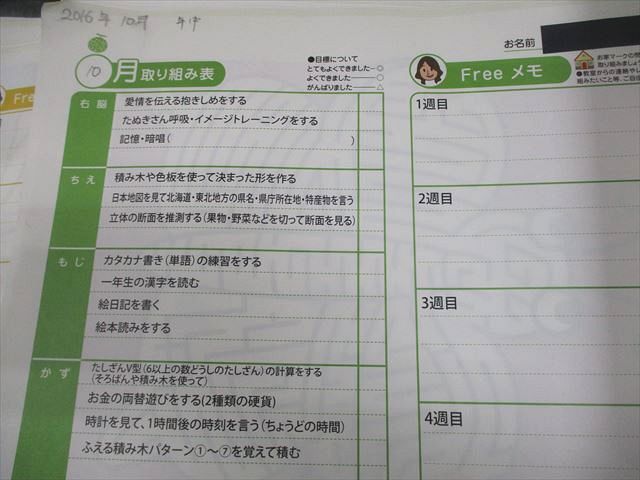 2016年 10月
お名前
10月取り組み表
●目標について
とてもよくできました--◎
よくできました--------○
がんばりました--------△
Free メモ
お家マークの
取り組みましょ
●教室からの連絡
組みたいこと等、ご自
Free
右脳
愛情を伝える抱きしめをする
たぬきさん呼吸・イメージトレーニングをする
記憶・暗唱( )
ちえ
積み木や色板を使って決まった形を作る
日本地図を見て北海道・東北地方の県名・県庁所在地・特産物を言う
立体の断面を推測する(果物・野菜などを切って断面を見る)
もじ
カタカナ書き(単語)の練習をする
一年生の漢字を読む
絵日記を書く
絵本読みをする
かず
たしざんV型(6以上の数どうしのたしざん)の計算をする
(そろばんや積み木を使って)
お金の両替遊びをする(2種類の硬貨)
時計を見て、1時間後の時刻を言う(ちょうどの時間)
ふえる積み木パターン①〜⑦を覚えて積む
1週目
2週目
3週目
4週目